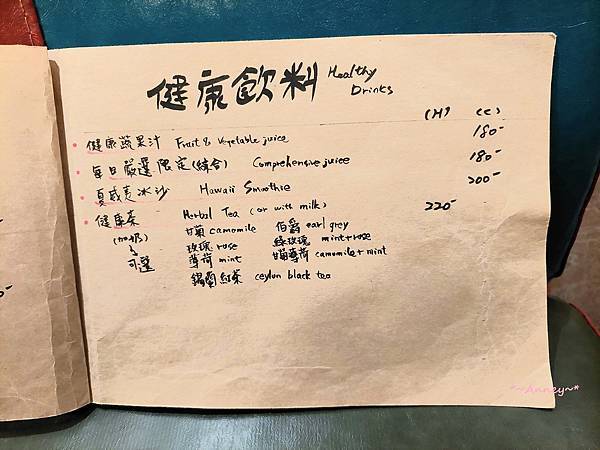 健康飲料 Healthy Drinks
(H) (C)
健康蔬果汁 Fruit & Vegetable juice 180-
每日嚴選限定(綜合) Comprehensive juice 180-
夏威夷冰沙 Hawaii Smoothie 200-
健康茶 Herbal Tea (or with milk) 220-
(加奶) 甘菊 camomile 伯爵 earl grey
可選 玫瑰 rose 綠玫瑰 mint+rose
薄荷 mint 甘菊薄荷 camomile+mint
錫蘭紅茶 ceylon black tea
*~Anney~*